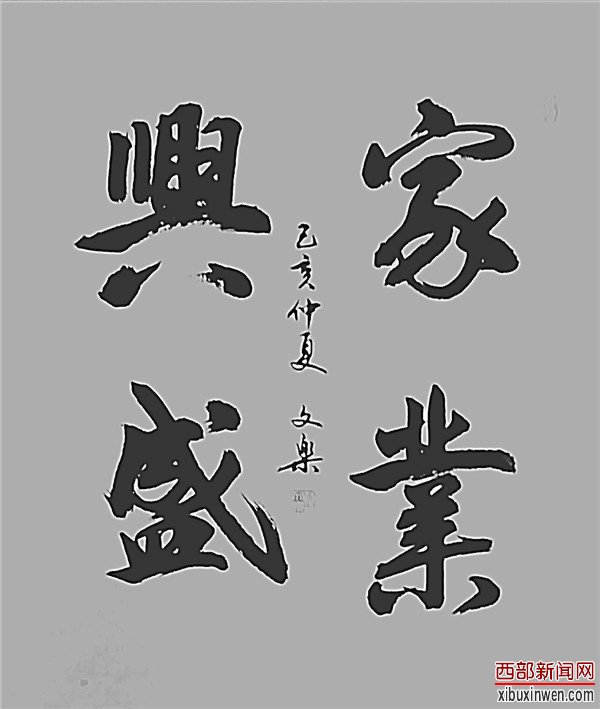 家業
興盛
己亥仲夏 文樂
西部新闻网
xibuxinwen.com